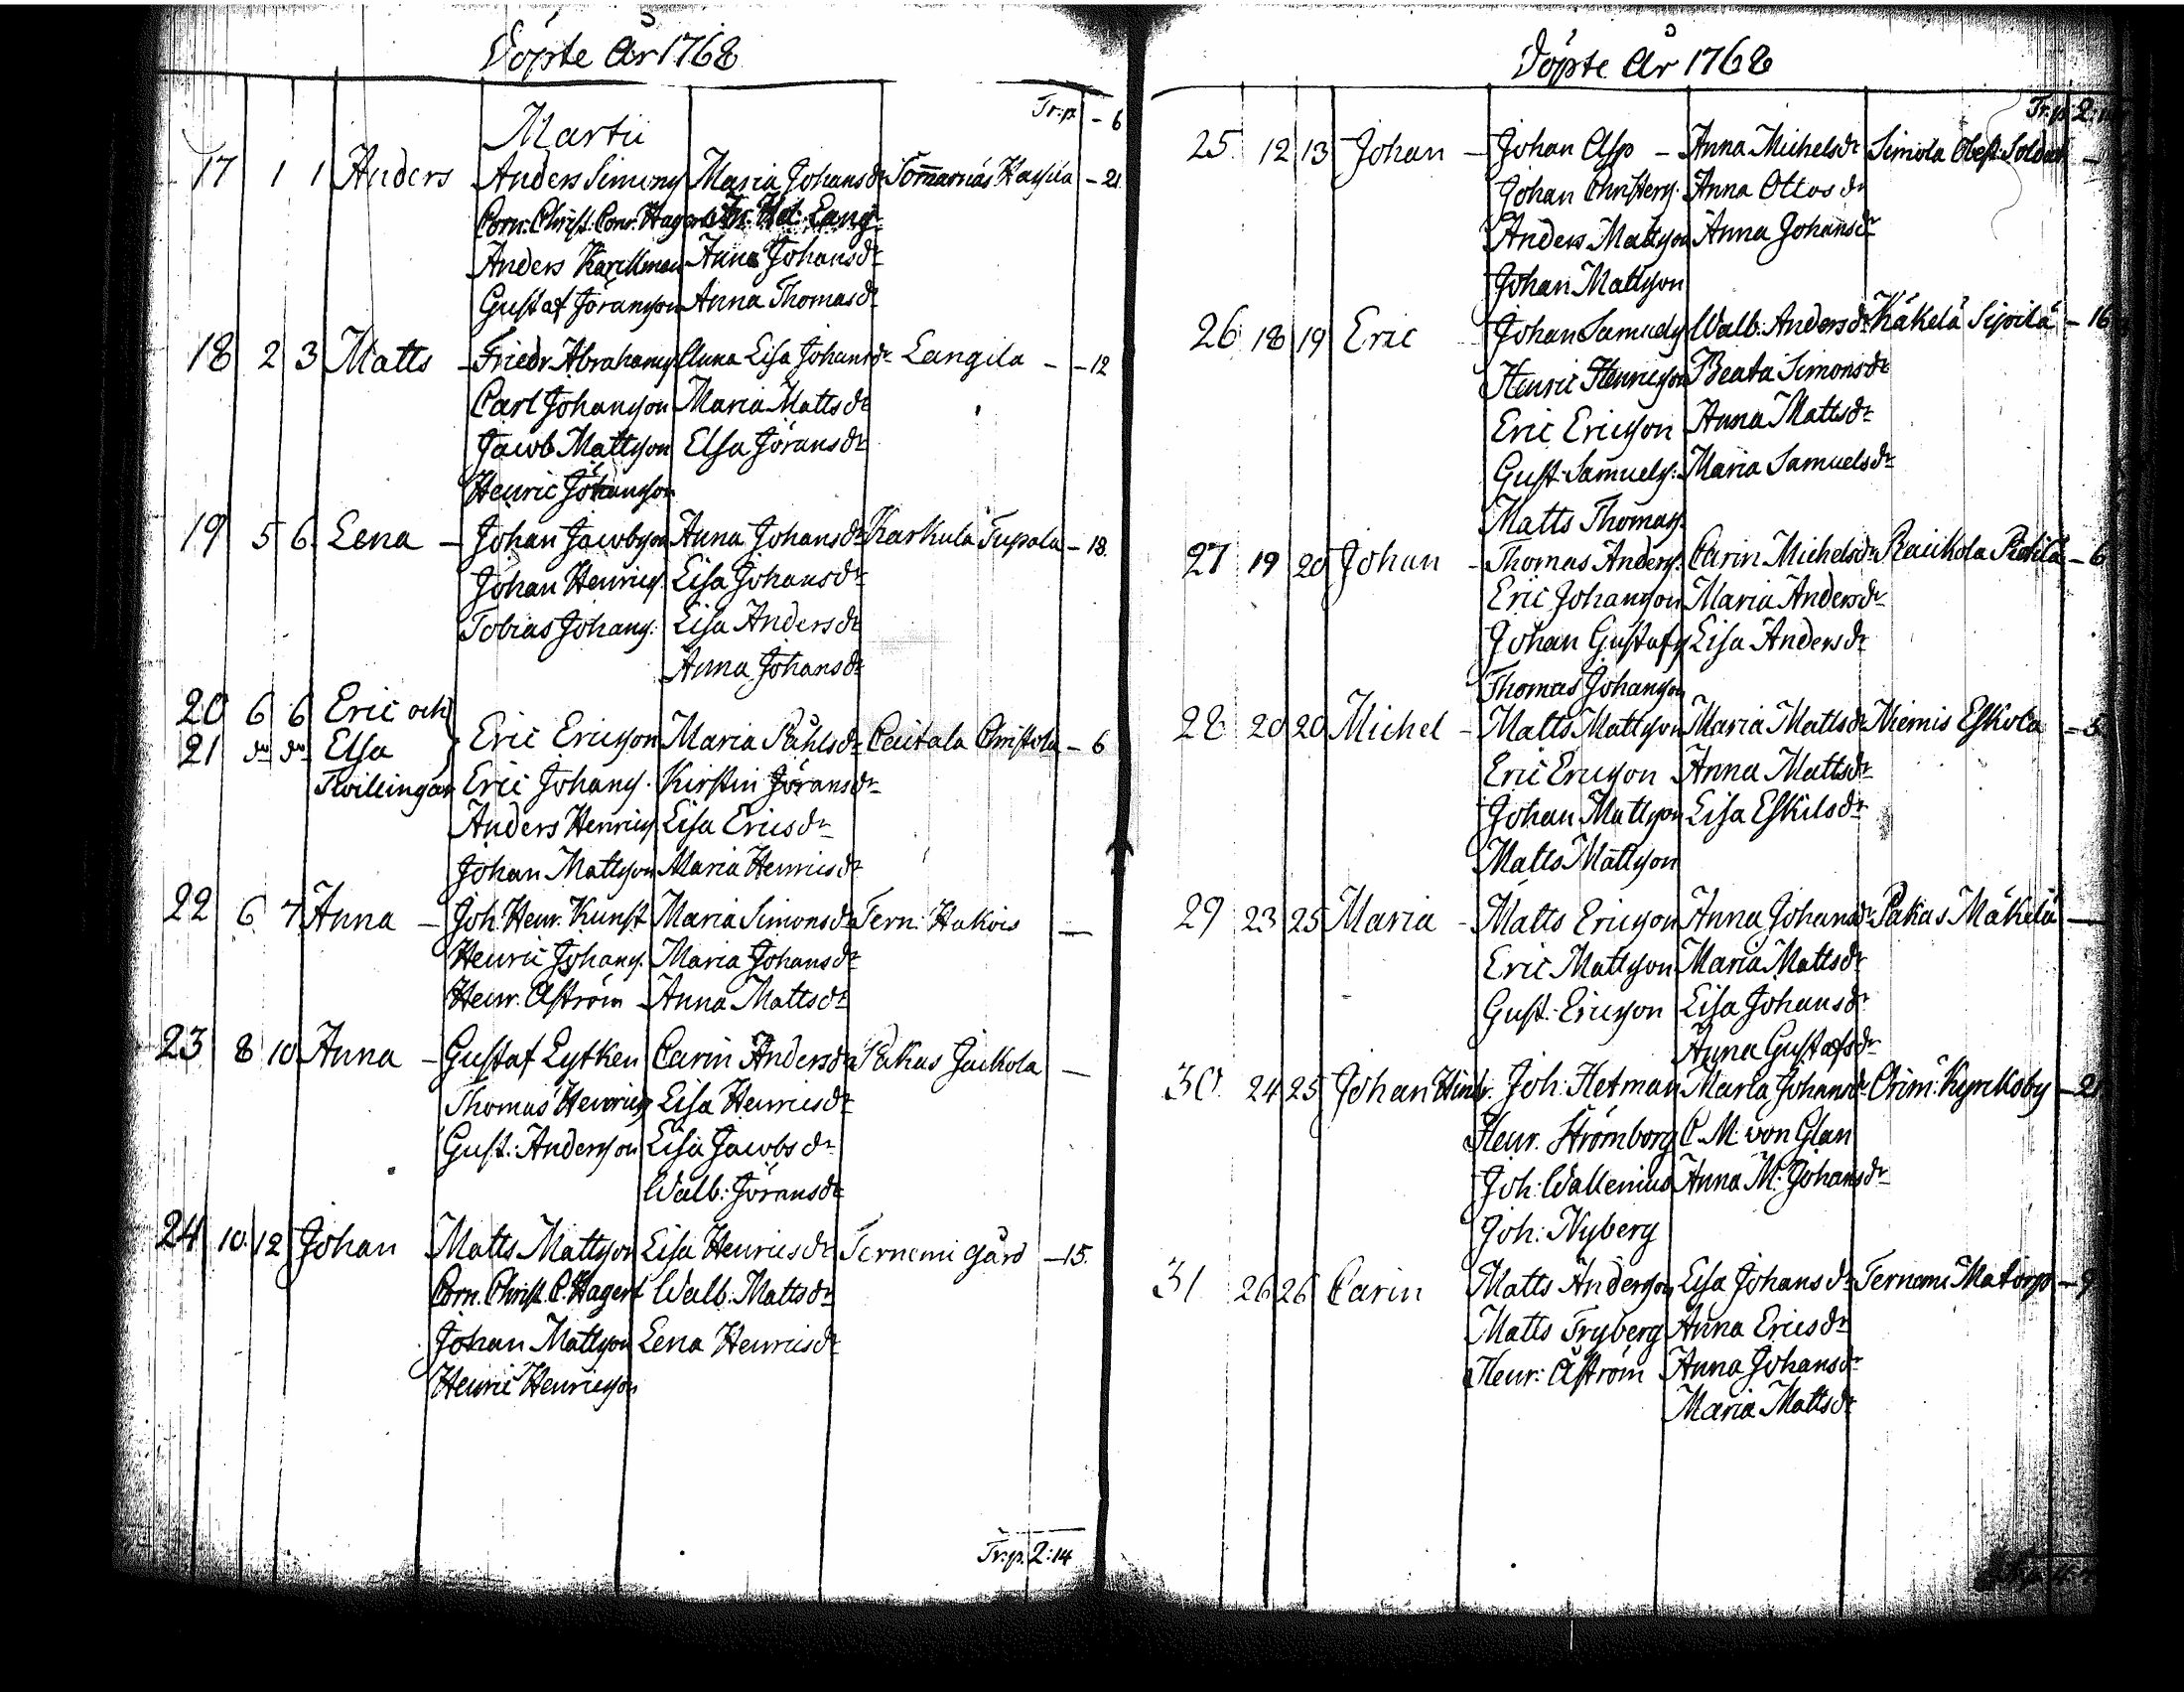 Döpte År 1768
Tr: p. - 6
Martii
17 1 1 Anders Anders Simons Maria Johansdr Tömarnäs Haxila - 21.
Corn: Christ: Conr: Hagert Fr: Hel: Lang
Anders Karellman Anna Johansdr
Gustaf Jöransson Anna Thomasdr
18 2 3 Matts - Friedr Abrahams Anna Lisa Johansdr Langila - - 12
Carl Johansson Maria Mattsdr
Jacob Mattsson Elsa Jöransdr
Henric Johansson
19 5 6 Lena - Johan Jacobsson Anna Johansdr Karkula Tupala - 18.
Johan Henrics. Lisa Johansdr
Tobias Johans: Lisa Andersdr
Anna Johansdr
20 6 6 Eric och
21 do do Elsa Eric Ericsson Maria Påhlsdr Cautala Christola - 6
Tvillingar Eric Johans. Kirstin Jöransdr
Anders Henrics Lisa Ericsdr
Johan Mattsson Maria Henricsdr
22 6 7 Anna - Joh: Henr: Kunst Maria Simonsdr Tern: Hakois -
Henric Johans. Maria Johansdr
Henr. Åström Anna Mattsdr
23 8 10 Anna - Gustaf Lytken Carin Andersdr Pakas Jackola -
Thomas Henrics Lisa Henricsdr
Gust: Andersson Lisa Jacobsdr
Walb: Jöransdr
24 10. 12 Johan Matts Mattsson Lisa Henricsdr Ternemi gård - 15.
Corn. Christ. C. Hagert Walb. Mattsdr
Johan Mattsson Lena Henricsdr
Henric Henricsson
Tr: p. 2: 14
Döpte År 1768
Tr: p. 2:
25. 12 13 Johan - Johan Asp - Anna Michelsdr Simola Soldat -
Johan Christers. Anna Ottosdr
Anders Mattsson Anna Johansdr
Johan Mattsson
26 18 19 Eric Johan Samuels Walb: Andersdr Käkelä Sipilä - 16
Henric Henricsson Beata Simonsdr
Eric Ericsson Anna Mattsdr
Gust. Samuels: Maria Samuelsdr
Matts Thomas.
27 19 20 Johan - Thomas Anders. Carin Michelsdr Rauhola - 6
Eric Johansson Maria Andersdr
Johan Gustafs Lisa Andersdr
Thomas Johansson
28 20 20 Michel - Matts Mattsson Maria Mattsdr Niemis Eskola - 5
Eric Ericsson Anna Mattsdr
Johan Mattsson Lisa Eskilsdr
Matts Mattsson
29 23 25 Maria - Matts Ericsson Anna Johansdr Pakas Mäkelä -
Eric Mattsson Maria Mattsdr
Gust. Ericsson Lisa Johansdr
Anna Gustafsdr
30. 24 25 Johan Hinr. Joh: Hetman Maria Johansdr Orim: Kyrkoby - 21
Henr. Strömborg C. M. von Glan
Joh: Wallenius Anna M: Johansdr
Joh: Nyberg
31 26 26 Carin Matts Andersson Lisa Johansdr Ternemi Matorp - 9
Matts Fryberg Anna Ericsdr
Henr: Åström Anna Johansdr
Maria Mattsdr